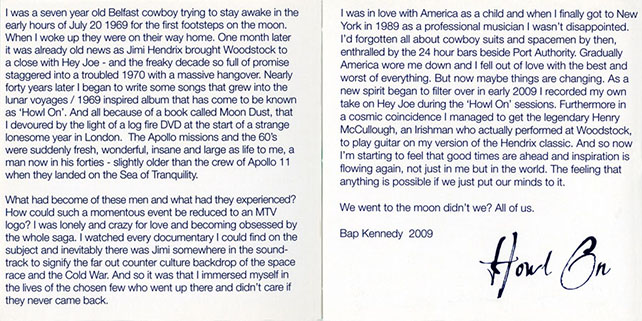 I was a seven year old Belfast cowboy trying to stay awake in the
early hours of July 20 1969 for the first footsteps on the moon.
When I woke up they were on their way home. One month later
it was already old news as Jimi Hendrix brought Woodstock to
a close with Hey Joe - and the freaky decade so full of promise
staggered into a troubled 1970 with a massive hangover. Nearly
forty years later I began to write some songs that grew into the
lunar voyages / 1969 inspired album that has come to be known
as ‘Howl On’. And all because of a book called Moon Dust, that
I devoured by the light of a log fire DVD at the start of a strange
lonesome year in London.  The Apollo missions and the 60’s
were suddenly fresh, wonderful, insane and large as life to me, a
man now in his forties - slightly older than the crew of Apollo 11
when they landed on the Sea of Tranquility.

What had become of these men and what had they experienced?
How could such a momentous event be reduced to an MTV
logo? I was lonely and crazy for love and becoming obsessed by
the whole saga. I watched every documentary I could find on the
subject and inevitably there was Jimi somewhere in the sound-
track to signify the far out counter culture backdrop of the space
race and the Cold War. And so it was that I immersed myself in
the lives of the chosen few who went up there and didn’t care if
they never came back.

I was in love with America as a child and when I finally got to New
York in 1989 as a professional musician I wasn’t disappointed.
I’d forgotten all about cowboy suits and spacemen by then,
enthralled by the 24 hour bars beside Port Authority. Gradually
America wore me down and I fell out of love with the best and
worst of everything. But now maybe things are changing. As a
new spirit began to filter over in early 2009 I recorded my own
take on Hey Joe during the ‘Howl On’ sessions. Furthermore in
a cosmic coincidence I managed to get the legendary Henry
McCullough, an Irishman who actually performed at Woodstock,
to play guitar on my version of the Hendrix classic. And so now
I’m starting to feel that good times are ahead and inspiration is
flowing again, not just in me but in the world. The feeling that
anything is possible if we just put our minds to it.

We went to the moon didn’t we? All of us.

Bap Kennedy  2009

Howl On